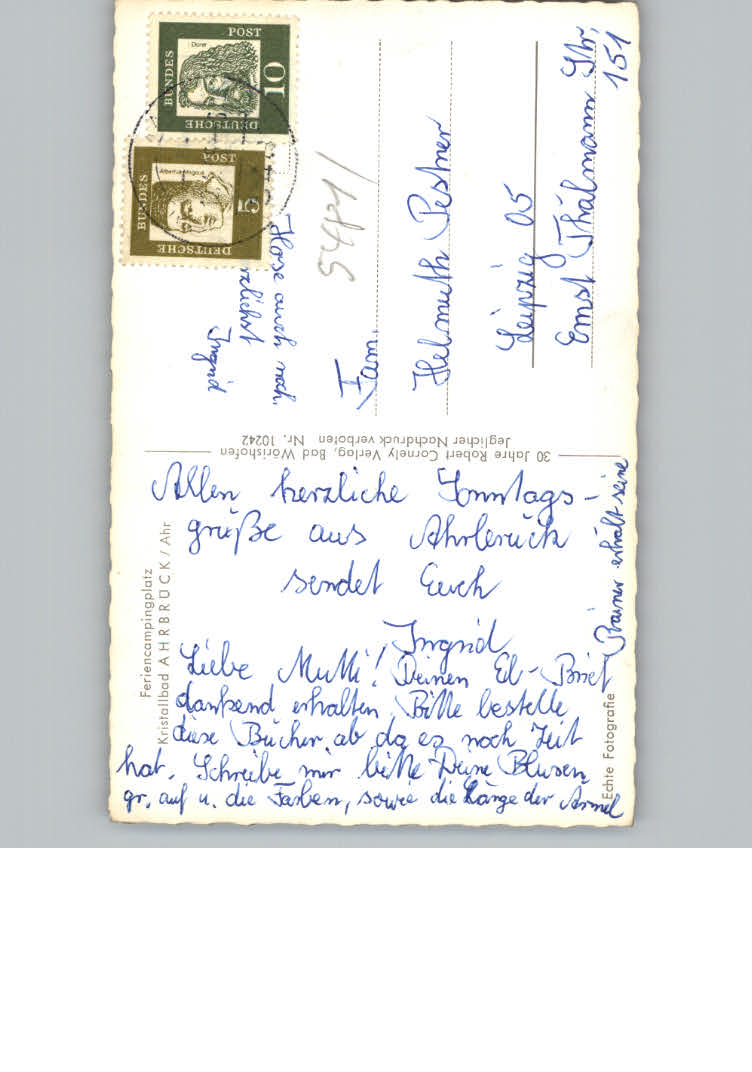 Allen herzliche Sonntags-
grüße aus Ahrbrück
sendet Euch
Ingrid
Liebe Mutti! Deinen El-Brief
dankend erhalten. Bitte bestelle
diese Bücher ab da es noch Zeit
hat. Schreibe mir bitte Deine Blusen
gr. auf u. die Farben, sowie die Länge der Ärmel
Rainer erhält seine
Hose auch noch.
Ingrid
Fam.
Helmuth
Leipzig 05
Ernst Thälmann Str.
151
5481/
Feriencampingplatz
Kristallbad AHRBRÜCK / Ahr
Echte Fotografie
30 Jahre Robert Cornely Verlag, Bad Wörishofen
Jeglicher Nachdruck verboten Nr. 10242
DEUTSCHE
BUNDES
POST
10
Dürer
DEUTSCHE
BUNDES
POST
5
Albertus Magnus